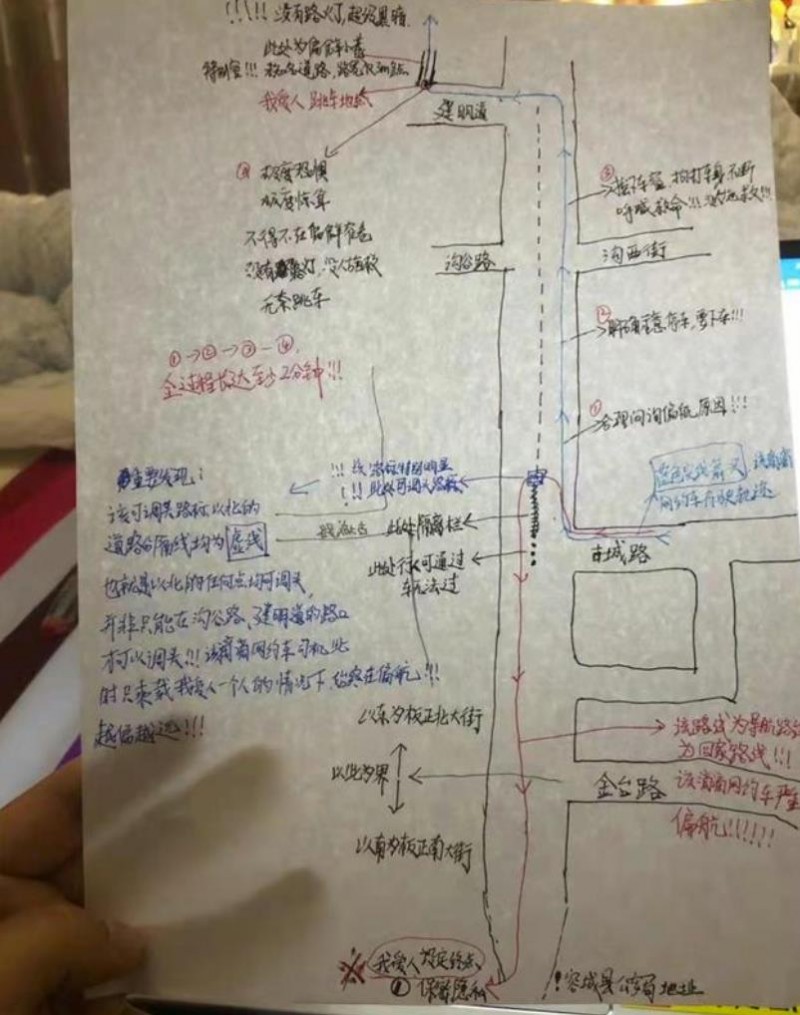 !!!!! 没有路灯,超级黑暗
此处为偏僻小巷
特别窄!!! 无名道路,路宽只
我爱人 跳车地点
建明道
④ 极度恐惧
极度惊慌
不得不在偏僻夜色
没有路灯,没人施救
无奈跳车
③→拉车窗,拍打车身,不断
呼喊救命!!!
沟谷路
沟西街
②→明确示意停车,要下车!!!
①→②→③-④,
全过程长达至少2分钟!!!
①→合理询问偏航原因!!!
重要发现:
该可调头路标以北的
道路分隔线均为虚线
也就是以北的任何点均可调头,
并非只能在沟谷路、建明道的路口
才可以调头!!!该滴滴网约车司机此
时只乘载我爱人一个人的情况下,始终在偏航!!!
越偏越远!!!
!!! 该路标特别明显
!!! 此处可调头路标
此处隔离栏
此处行人可通过
车无法过
蓝色实线箭头,该滴滴
网约车行驶轨迹
古城路
以东为板正北大街
以此为界
以南为板正南大街
该路线为导航路线
为回家路线!!!
该滴滴网约车严重
偏航!!!!!!
金台路
※ 我爱人预定终点
保留隐私
!容城县公安局地址